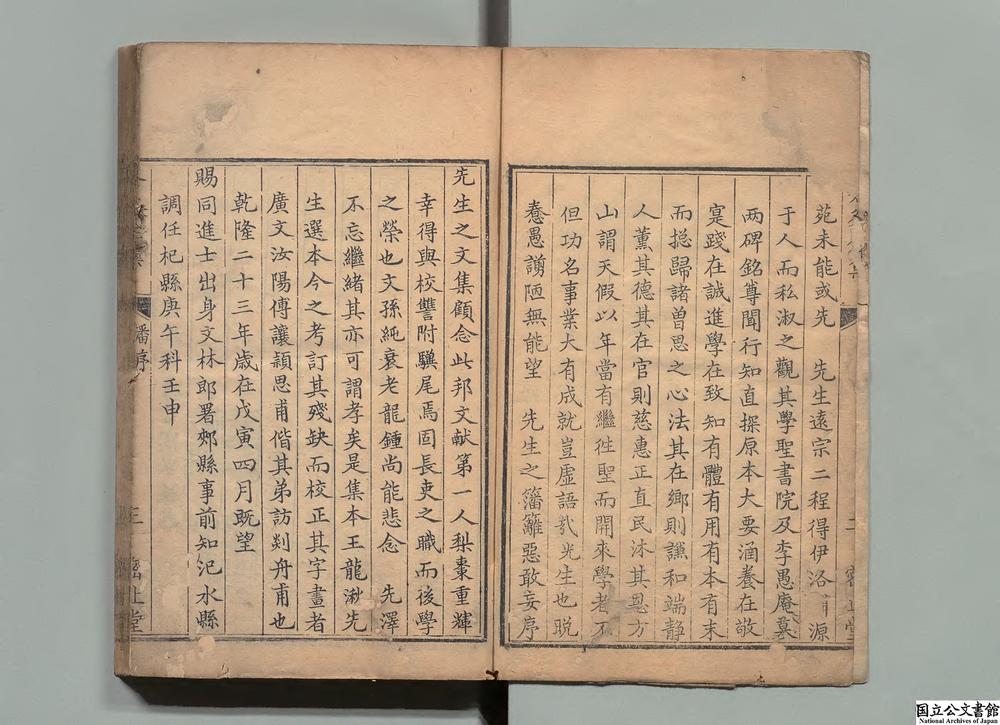 苑未能或先　先生遠宗二程得伊洛淵源
于人而私淑之觀其學聖書院及李愚庵墓
两碑銘尊聞行知直探原本大要涵養在敬
寔踐在誠進學在致知有體有用有本有末
而摠歸諸曽思之心法其在鄉則謙和端静
人薰其德其在官則慈惠正直民沐其恩方
山謂天假以年當有繼徃聖而開來學者不
但功名事業大有成就豈虛語哉光生也晚
惷愚謭陋無能望　先生之籓籬惡敢妄序
先生之文集顧念此邦文献第一人梨棗重輝
幸得與校讐附驥尾焉固長吏之職而後學
之榮也文孫純衷老龍鍾尚能悲念　先澤
不忘繼緒其亦可謂孝矣是集本王龍溆先
生選本今之考訂其殘缺而校正其字畫者
廣文汝陽傅讓頴思甫偕其弟訪剡舟甫也
乾隆二十三年歳在戊寅四月既望
賜同進士出身文林郎署郟縣事前知汜水縣
調任杞縣庚午科壬申
潘序
國立公文書館
National Archives of Japan